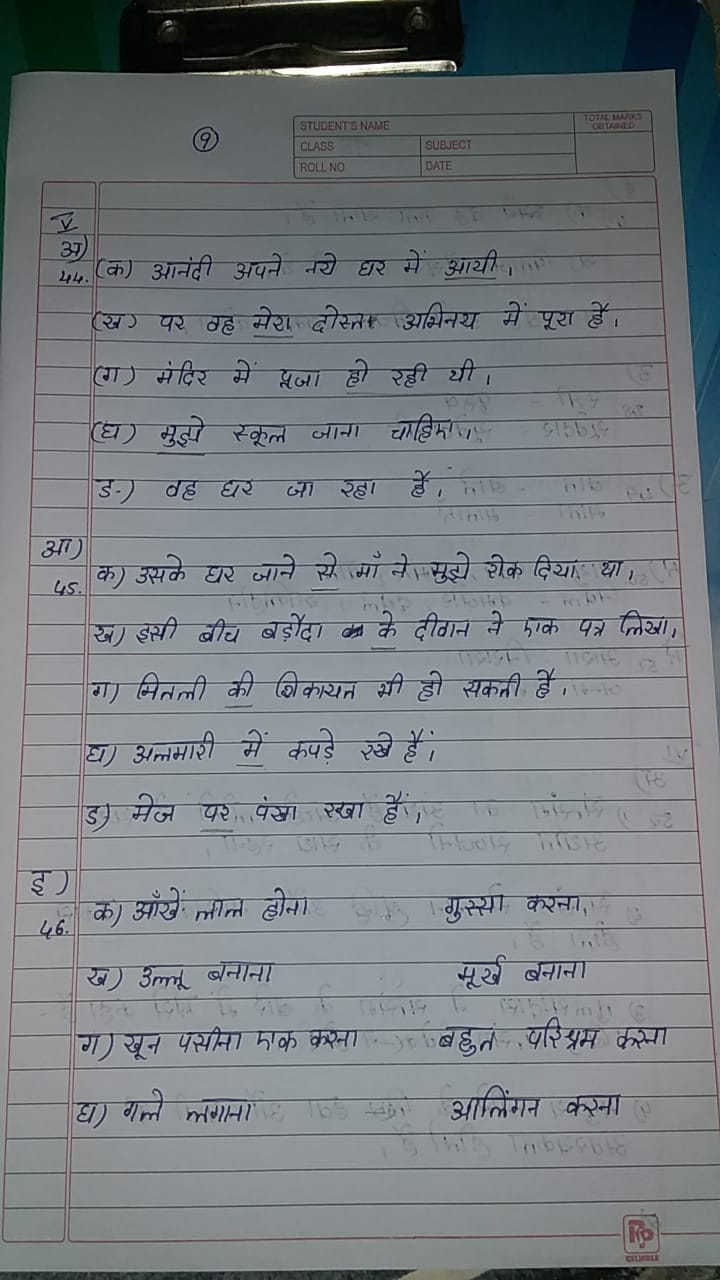 9
STUDENT'S NAME
TOTAL MARKS OBTAINED
CLASS SUBJECT
ROLL NO DATE
V
अ)
44. (क) आनंदी अपने नये घर में आयी।
(ख) पर वह मेरा दोस्त अभिनय में पूरा है।
(ग) मंदिर में पूजा हो रही थी।
(घ) मुझे स्कूल जाना चाहिए।
ङ) वह घर जा रहा है।
आ)
45. क) उसके घर जाने से माँ ने मुझे रोक दिया था।
ख) इसी बीच बड़ौदा के दीवान ने एक पत्र लिखा।
ग) मितली की शिकायत भी हो सकती है।
घ) अलमारी में कपड़े रखे हैं।
ङ) मेज पर पंखा रखा हैं।
इ)
46. क) आँखें लाल होना गुस्सा करना
ख) उल्लू बनाना मूर्ख बनाना
ग) खून पसीना एक करना बहुत परिश्रम करना
घ) गले लगाना आलिंगन करना
Rp